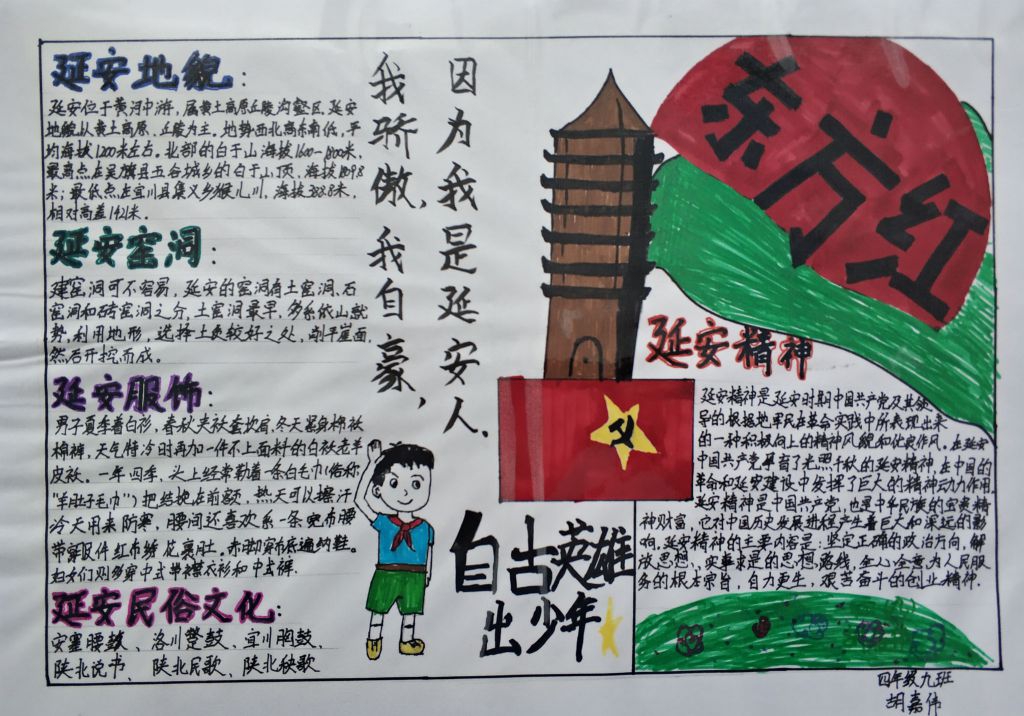 延安地貌:
延安位于黄河中游,属黄土高原丘陵沟壑区.延安
地貌以黄土高原、丘陵为主.地势西北高东南低,平
均海拔1200米左右,北部的白于山海拔1600-1800米,
最高点在吴旗县五谷城乡的白于山顶.海拔1809.8
米;最低点在宜川县集义乡猴儿川,海拔388.8米,
相对高差1421米。
延安窑洞:
建窑洞可不容易,延安的窑洞有土窑洞、石
窑洞和砖窑洞之分,土窑洞最早,多系依山就
势,利用地形,选择土质较好之处,削平崖面,
然后开挖而成。
延安服饰:
男子夏季着白衫,春秋夹袄套坎肩,冬天紧身棉袄
棉裤,天气特冷时再加一件不上面料的白板老羊
皮袄。一年四季,头上经常勒着一条白毛巾(俗称
"羊肚子毛巾")把结挽在前额,热天可以擦汗
冷天用来防寒,腰间还喜欢系一条宽布腰
带穿红布 花裹肚。赤脚穿布底遍纳鞋。
妇女们则多穿中式带襟衣衫和中式裤.
延安民俗文化:
安塞腰鼓、洛川蹩鼓、宜川胸鼓、
陕北说书、陕北民歌、陕北秧歌
因为我是延安人,
我骄傲,我自豪,
东方红
自古英雄
出少年
延安精神
延安精神是延安时期中国共产党及其领
导的根据地军民在革命实践中所表现出来
的一种积极向上的精神风貌和优良作风。在延安
中国共产党孕育了光照千秋的延安精神,在中国的
革命和延安建设中发挥了巨大的精神动力作用
延安精神是中国共产党,也是中华民族的宝贵精
神财富,它对中国历史发展进程产生着巨大和深远的影
响.延安精神的主要内容是:坚定正确的政治方向,解
放思想、实事求是的思想路线,全心全意为人民服
务的根本宗旨,自力更生,艰苦奋斗的创业精神.
四年级九班
胡嘉伟